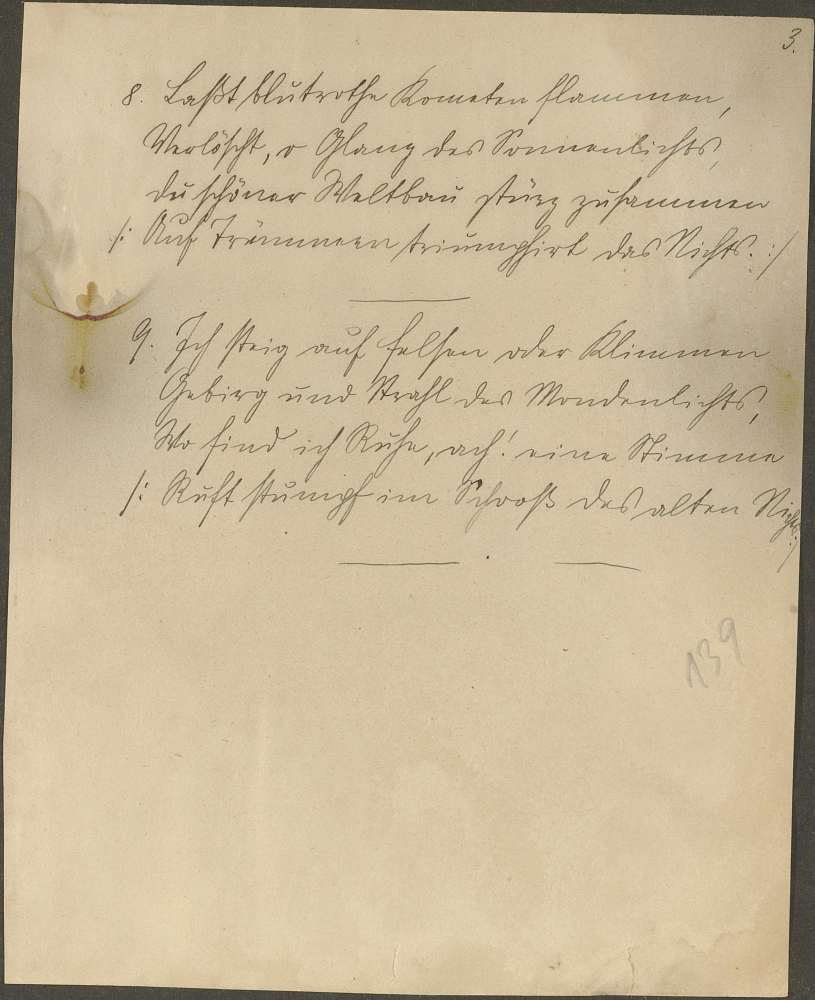 3.
8. Laßt blutrothe Kometen flammen,
Verlöscht, o Glanz des Sonnenlichts,
du schöner Weltbau stürz zusammen
/: Auf Trümmern triumphirt das Nichts. :/
9. Ich steig auf Felsen oder Klimmen
Gebirg und Strahl des Mondenlichts,
Wo find ich Ruhe, ach! eine Stimme
/: Ruft stumpf im Schooß des alten Nichts. :/
139